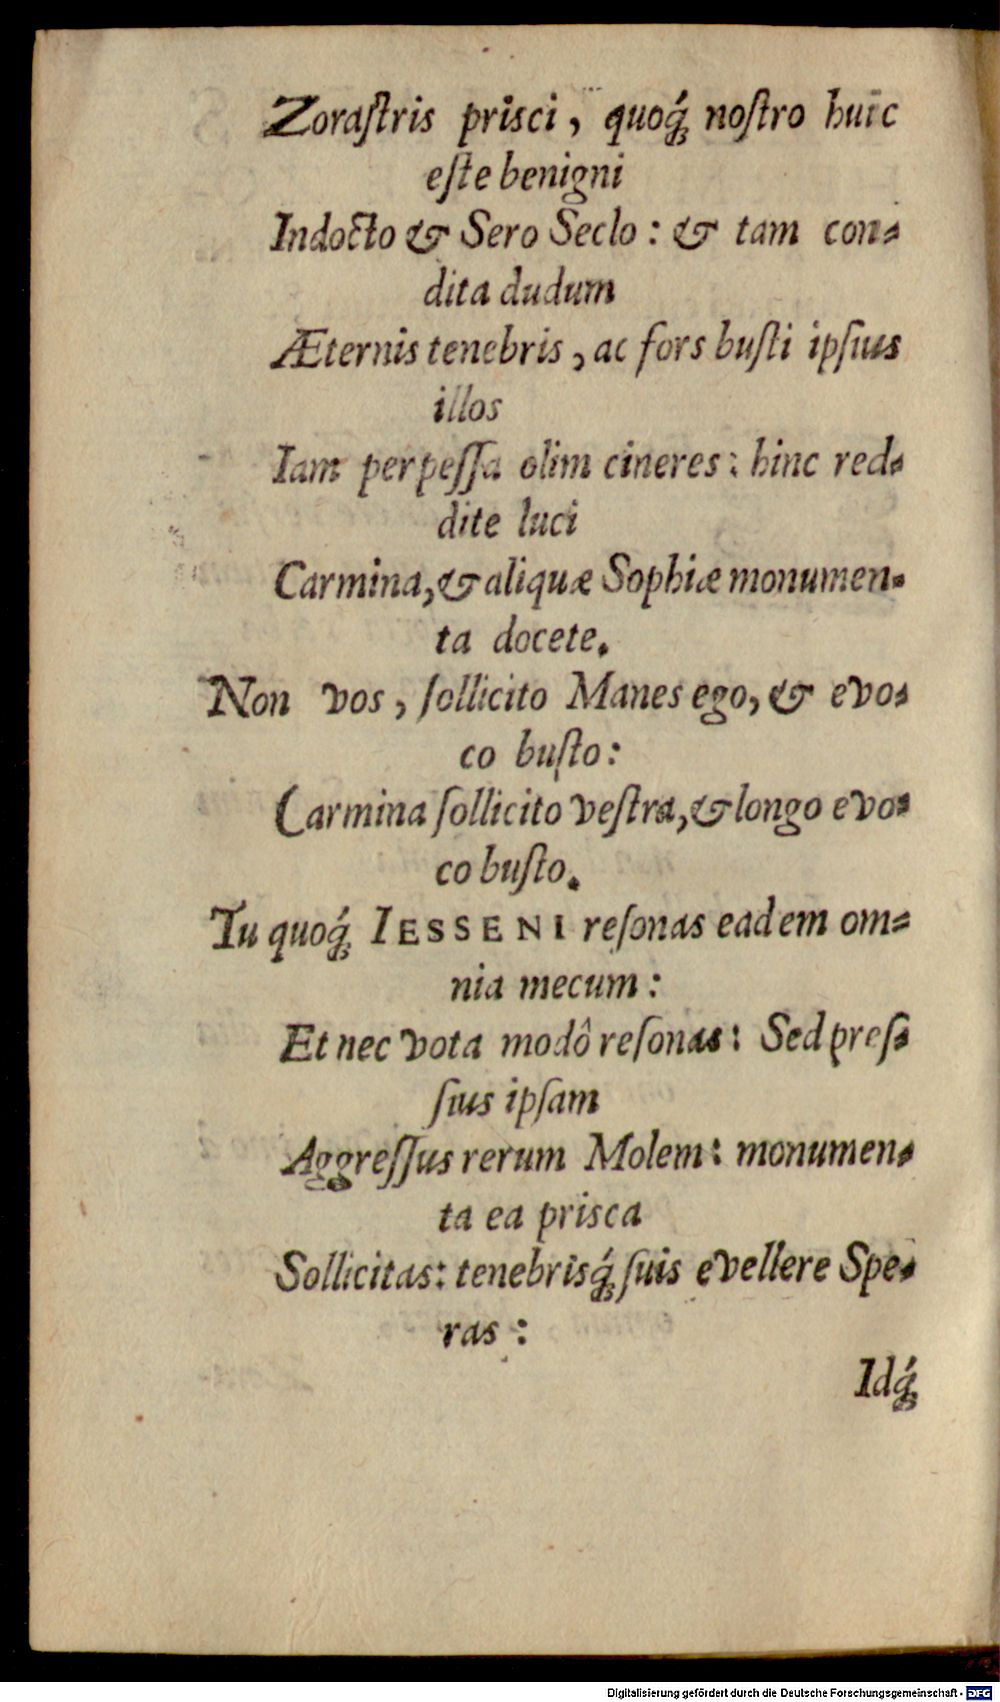 Zoraſtris prisci, quoq́; noſtro huic
eſte benigni
Indocto & Sero Seclo: & tam con-
dita dudum
Æternis tenebris, ac fors buſti ipſius
illos
Iam perpeſſa olim cineres: hinc red-
dite luci
Carmina, & aliquæ Sophiæ monumen-
ta docete.
Non vos, ſollicito Manes ego, & evo-
co buſto:
Carmina ſollicito veſtra, & longo evo-
co buſto.
Tu quoq́; IESSENI reſonas eadem om-
nia mecum:
Et nec vota modô reſonas: Sed preſ-
ſius ipſam
Aggreſſus rerum Molem: monumen-
ta ea prisca
Sollicitas: tenebrisq́; ſuis evellere Spe-
ras:
Idq́;
Digitalisierung gefördert durch die Deutsche Forschungsgemeinschaft - DFG